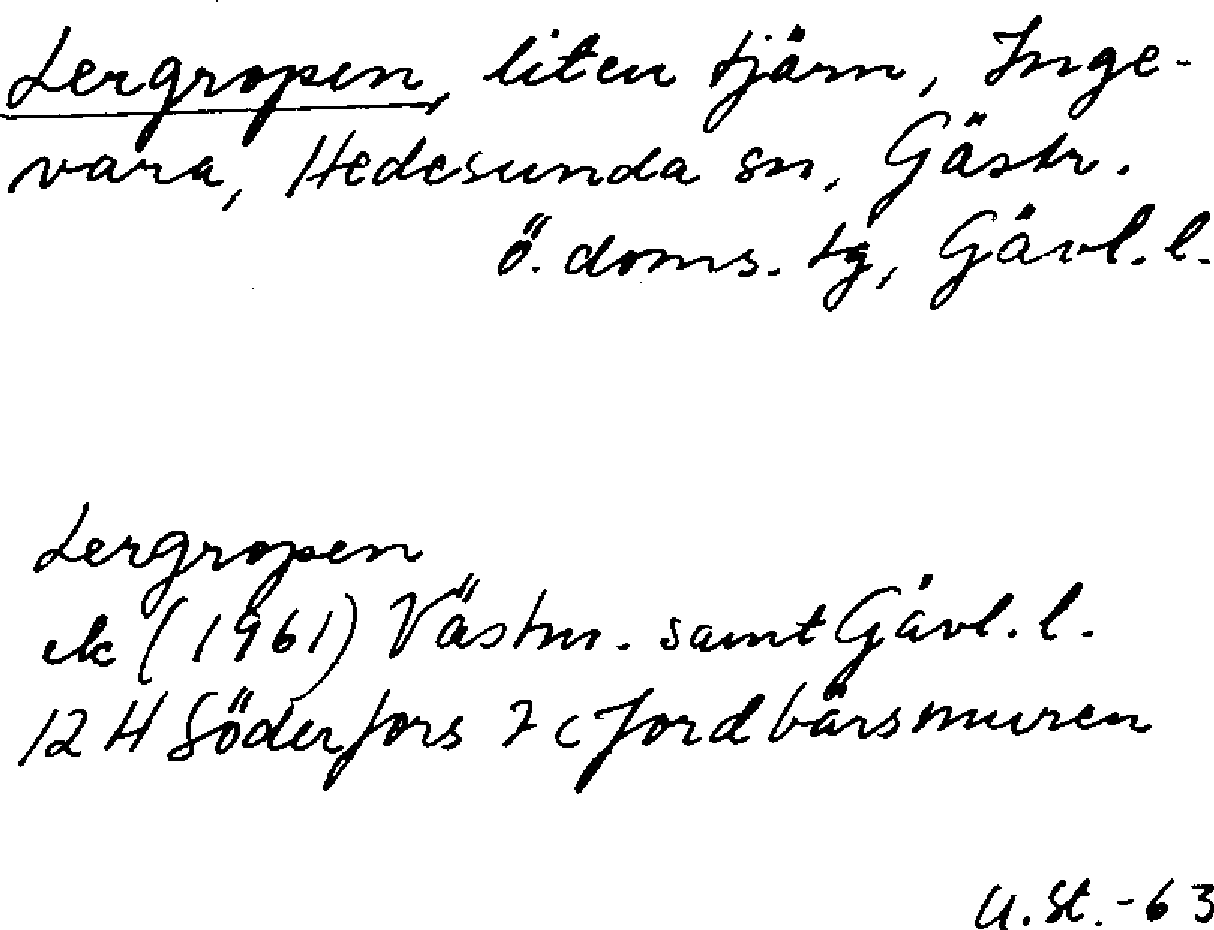 Lergropen, liten tjärn, Inge-
vara, Hedesunda sn, Gästr.
ö. doms. tg, Gävl. l.
Lergropen
ek (1961) Västm. samt Gävl. l.
12 H Söderfors 7 c Jordbärsmuren
U. St. -63